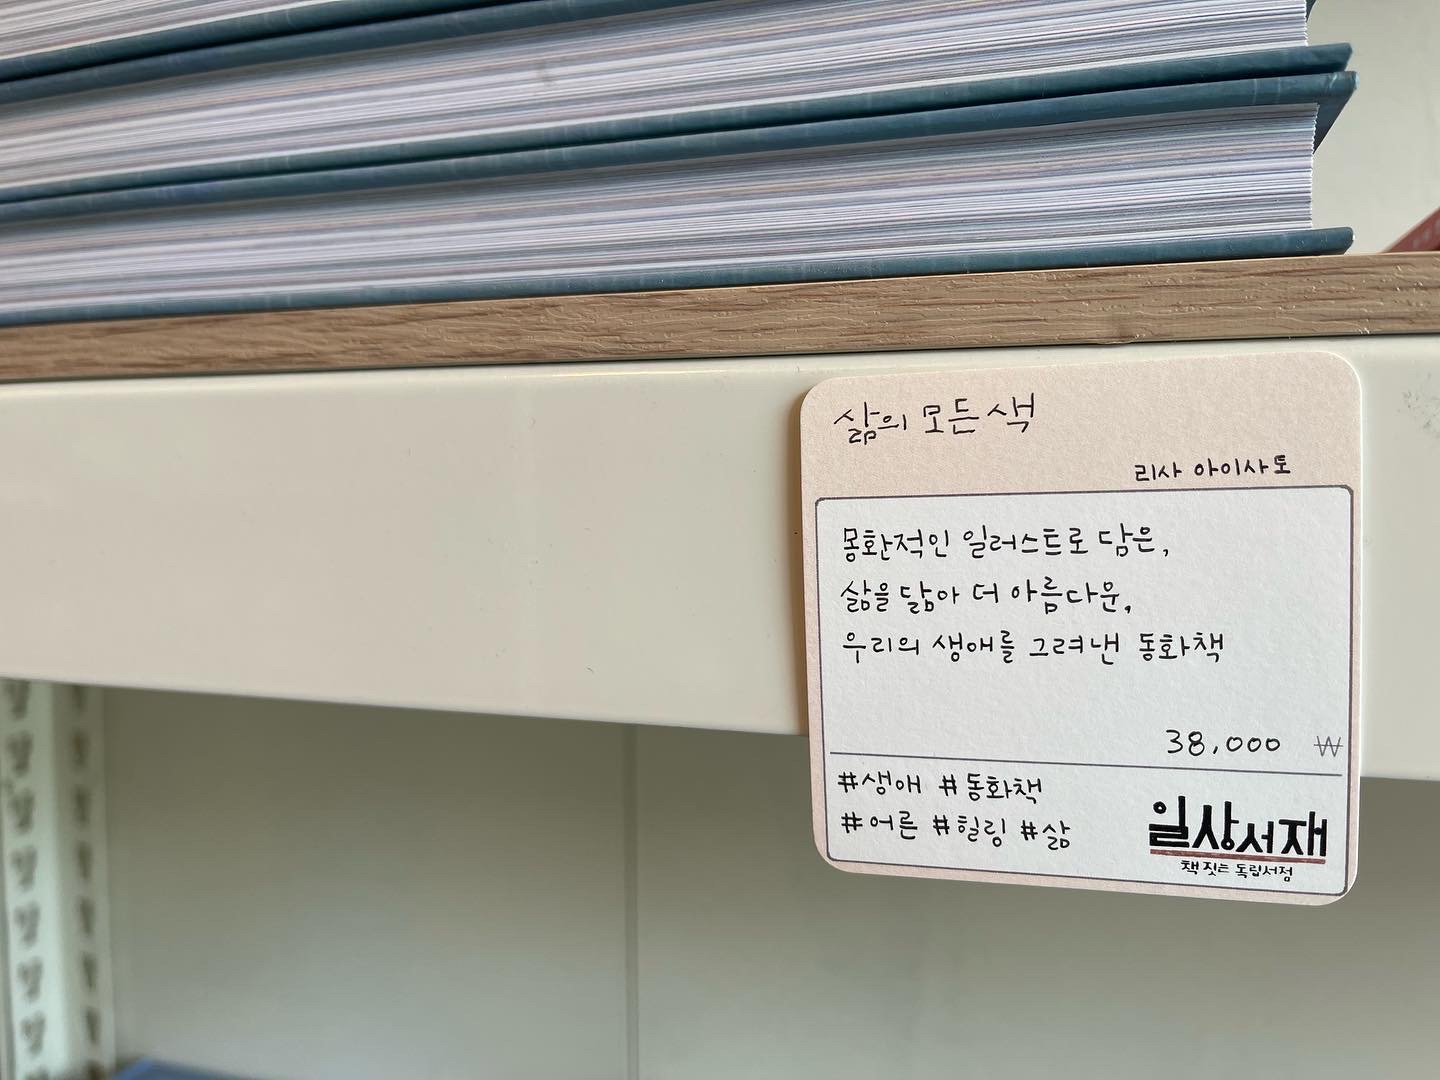 삶의 모든 색
리사 아이사토
몽환적인 일러스트로 담은,
삶을 닮아 더 아름다운,
우리의 생애를 그려낸 동화책
38,000 ₩
#생애 #동화책
#어른 #힐링 #삶
일상서재
책 짓는 독립서점